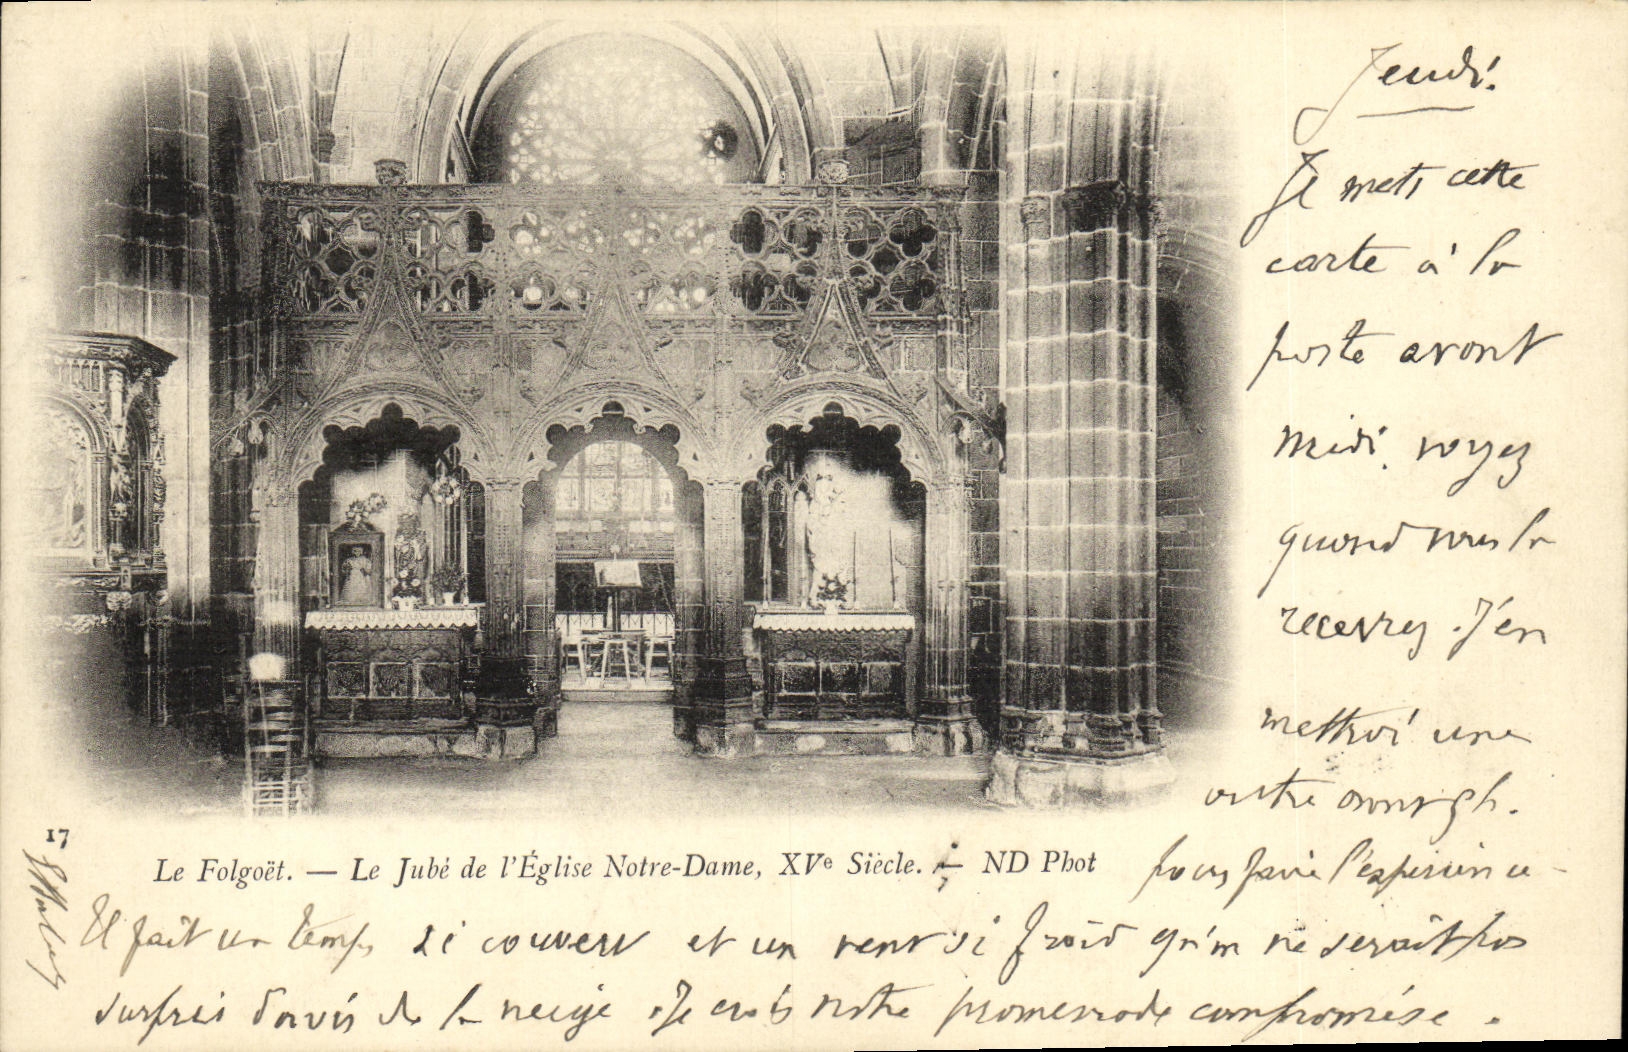 Jeudi.
Je mets cette
carte à la
poste avant
midi. voyez
quand vous la
recevrez. J'en
mettrai une
autre
pour faire l'expérience
17
Le Folgoët. — Le Jubé de l'Église Notre-Dame, XVe Siècle. — ND Phot
Il fait un temps si couvert et un vent si froid qu'on ne serait pas
surpris d'avoir de la neige. Je crois notre promenade compromise.